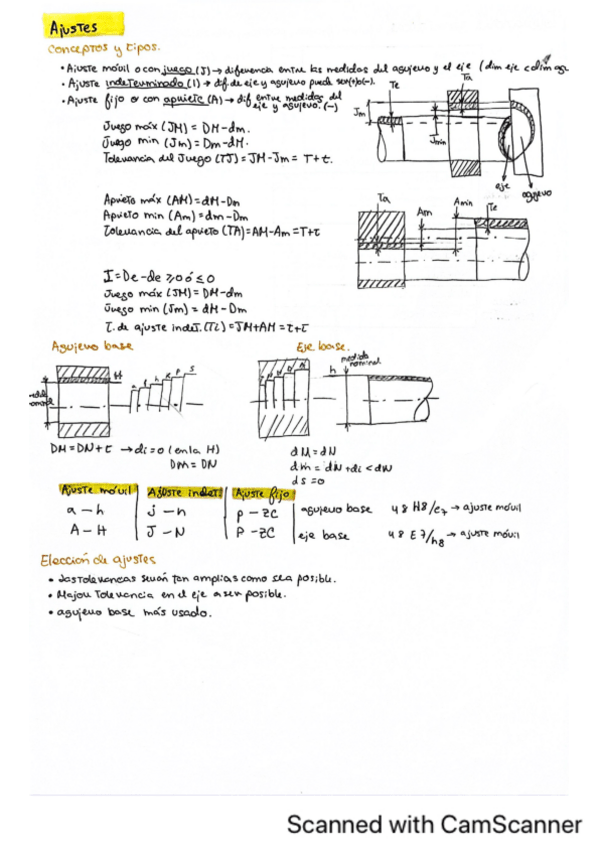 Ajustes
Conceptos y tipos.
• Ajuste móvil o con juego (J) → diferencia entre las medidas del agujero y el eje (dim eje < dim ag.
• Ajuste indeterminado (I) → dif. de eje y agujero puede ser (+) o (-).
• Ajuste fijo o con apriete (A) → dif entre medidas del eje y agujero. (-)
Juego máx (JM) = DM-dm.
Juego min (Jm) = Dm-dM.
Tolerancia del Juego (TJ) = JM-Jm = T+t.
Te
Ta
Jm
Jmin
eje
agujero
Apriete máx (AM) = dM-Dm
Apriete min (Am) = dm-Dm
Tolerancia del apriete (TA) = AM-Am = T+t
Ta
Am
Amin
Te
I = De-de ≥ 0 ó ≤ 0
Juego máx (JM) = DM-dm
Juego min (Jm) = dM-Dm
T. de ajuste indet. (TI) = JM+AM = t+t
Agujero base
Eje base.
H
P
S
medida nominal
h
DM = DN + t → di = 0 (en la H)
Dm = DN
dM = dN
dm = dN + di < dN
ds = 0
Ajuste móvil | Ajuste indet. | Ajuste fijo
a – h | j – n | p – zc | agujero base 48 H8/e7 → ajuste móvil
A – H | J – N | P – ZC | eje base 48 E7/h8 → ajuste móvil
Elección de ajustes
• Las tolerancias serán tan amplias como sea posible.
• Mayor tolerancia en el eje a ser posible.
• agujero base más usado.
Scanned with CamScanner